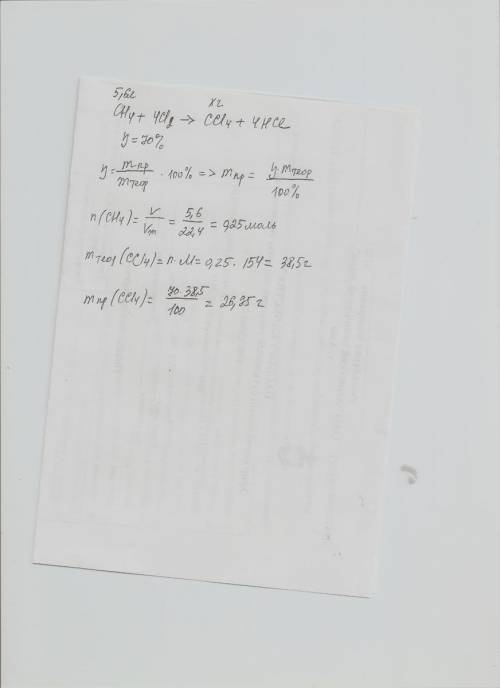 5,6л xг
CH4 + 4Cl2 → CCl4 + 4HCl
η = 70%
η = mпр / mтеор · 100% => mпр = η · mтеор / 100%
n(CH4) = V / Vm = 5,6 / 22,4 = 0,25 моль
mтеор (CCl4) = n · M = 0,25 · 154 = 38,5 г
mпр (CCl4) = 70 · 38,5 / 100 = 26,95 г